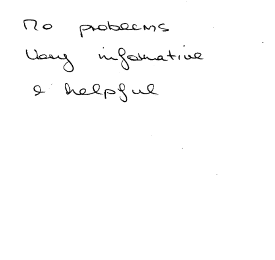 No problems
Very informative
& helpful